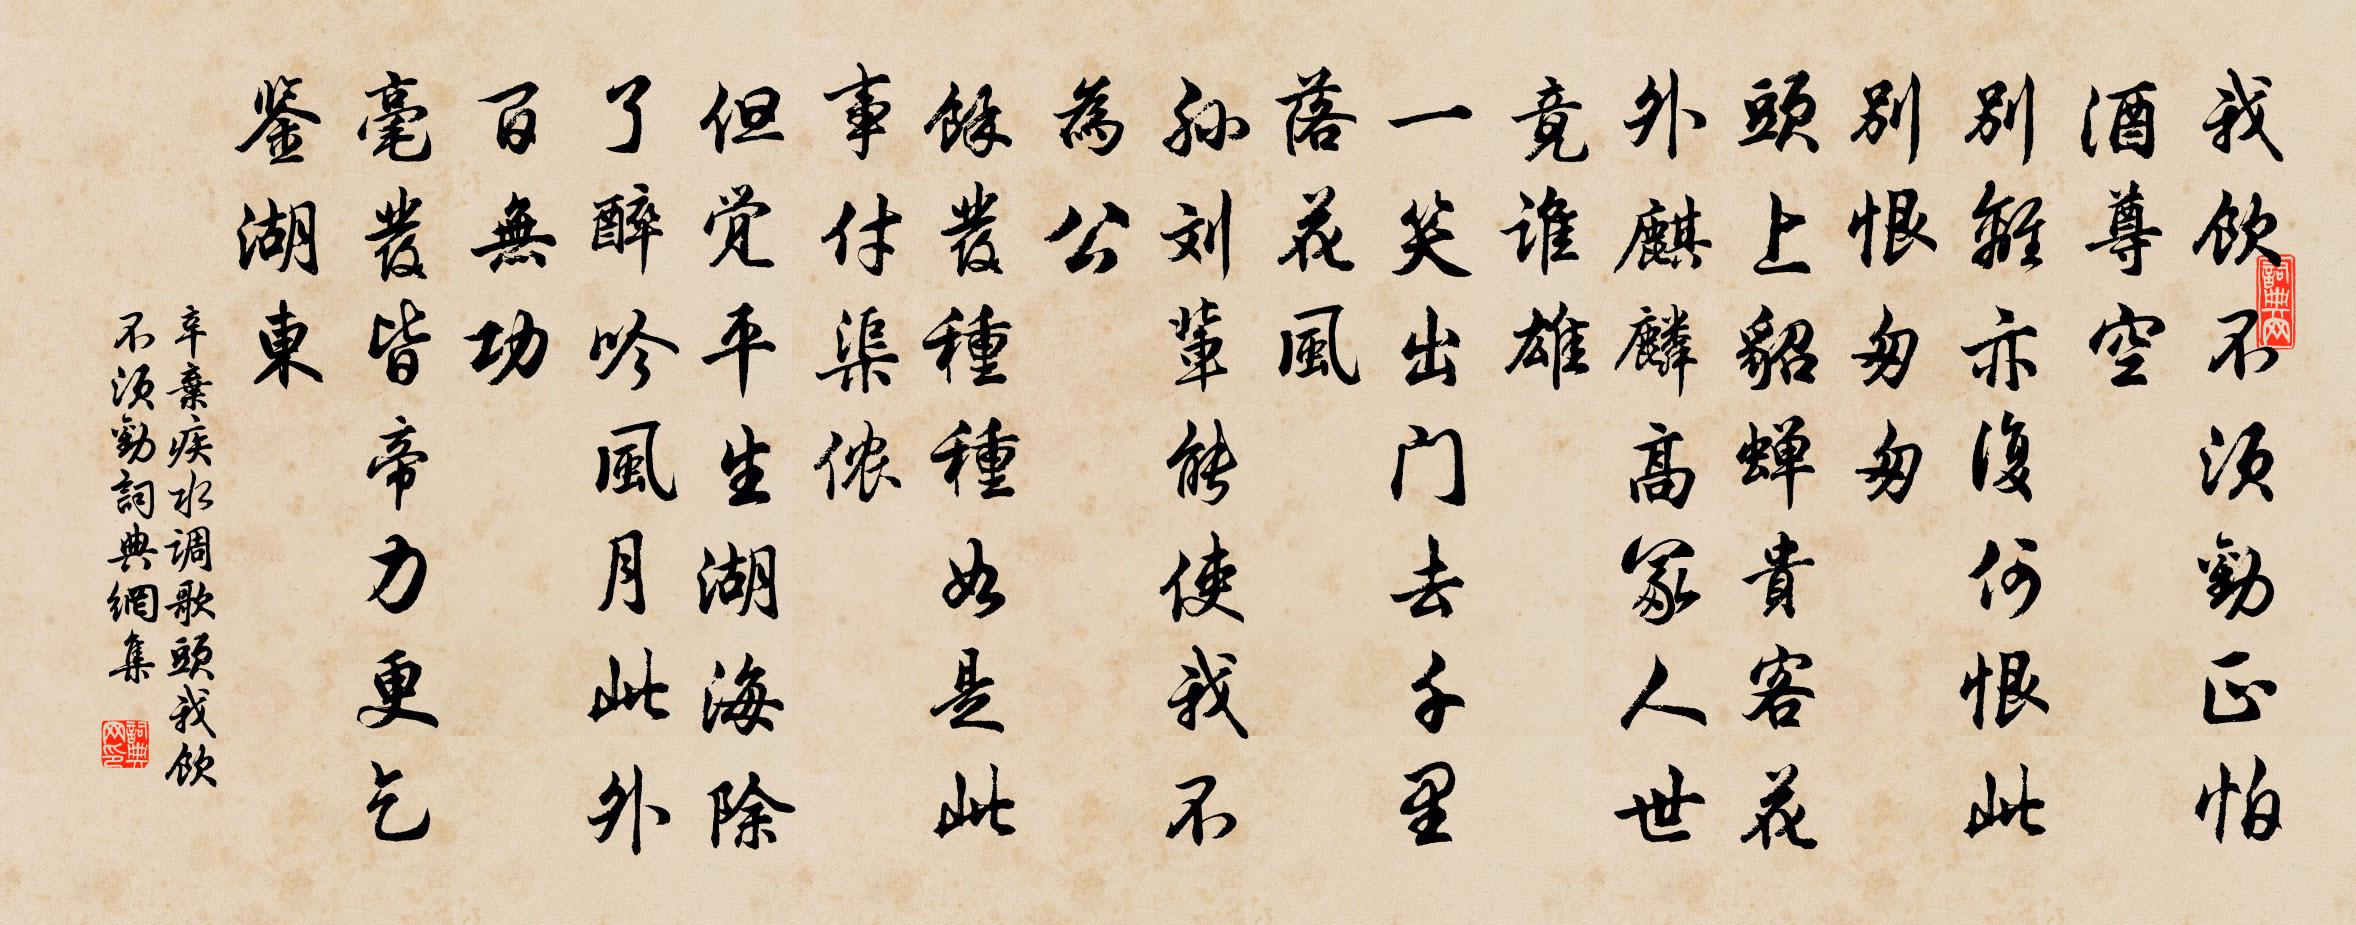 我飲不須勸正怕
酒尊空
別離亦復何恨此
別恨匆匆
頭上貂蟬貴客花
外麒麟高冢人世
竟誰雄
一笑出门去千里
落花風
孙刘輩能使我不
為公
餘發種種如是此
事付渠侬
但觉平生湖海除
了醉吟風月此外
百無功
毫發皆帝力更乞
鉴湖東
辛棄疾水调歌頭我飲
不須勸詞典網集
詞典网
詞典网印